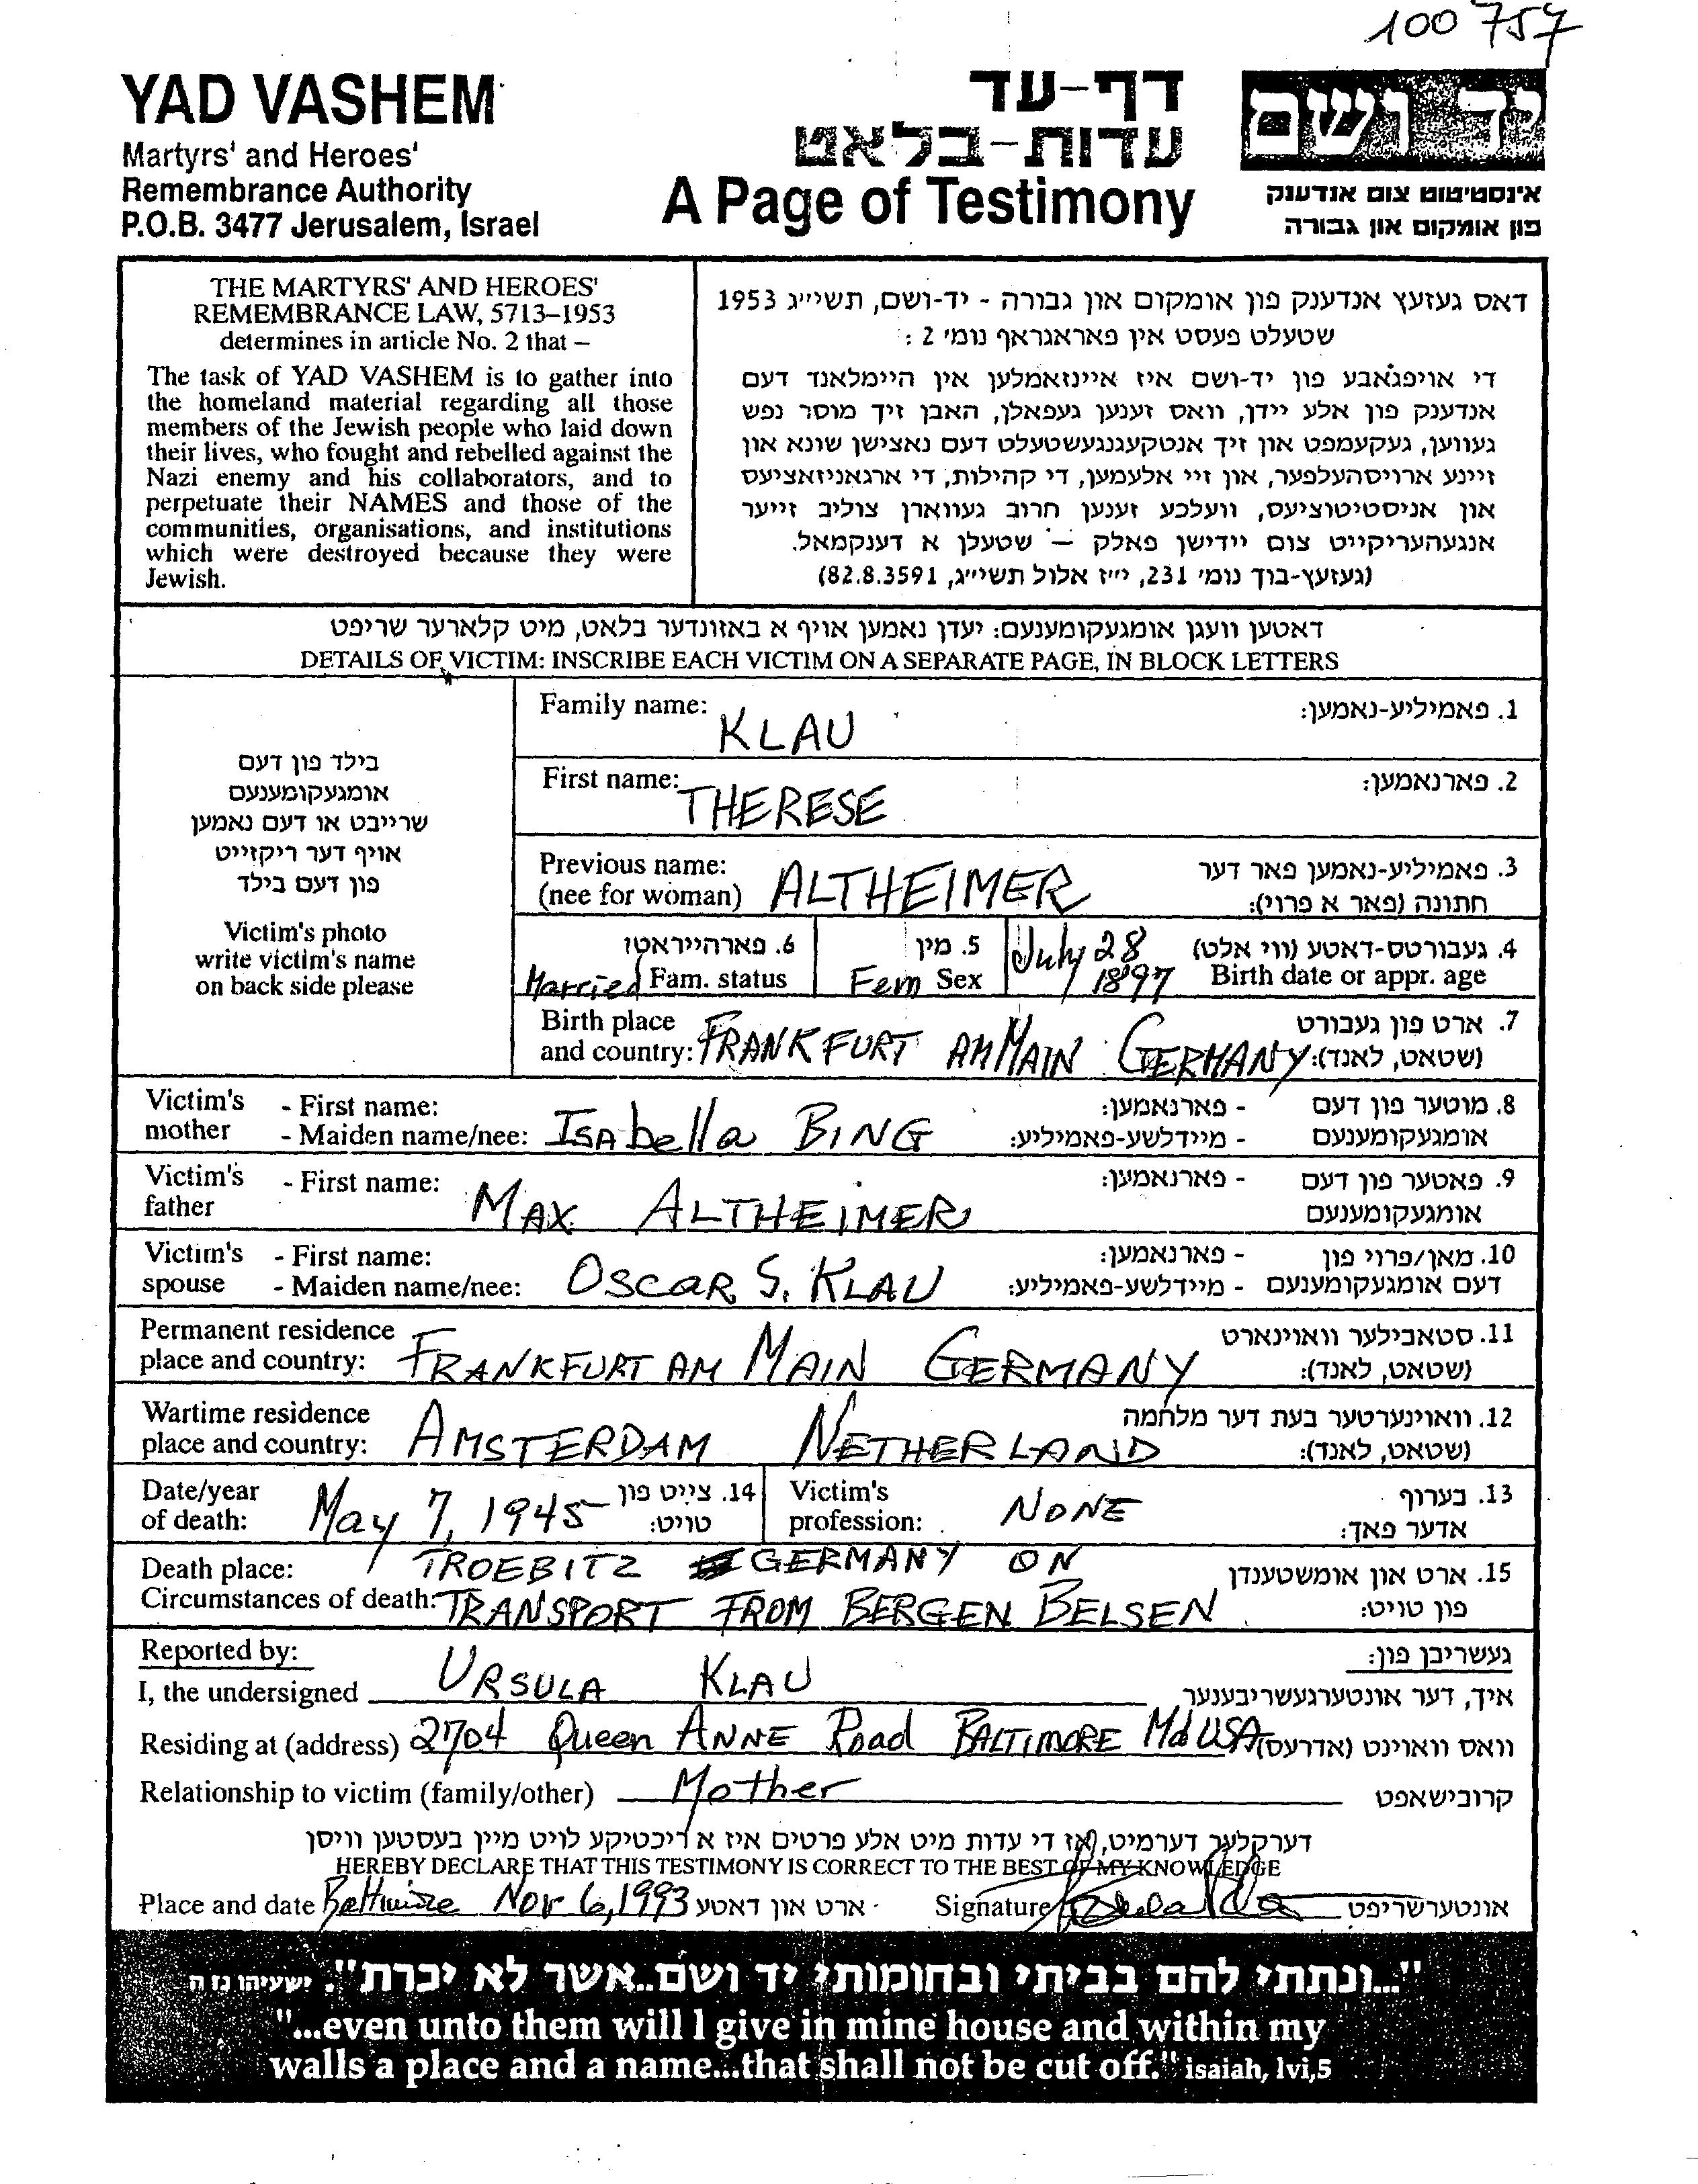 100 757
YAD VASHEM
Martyrs' and Heroes'
Remembrance Authority
P.O.B. 3477 Jerusalem, Israel
דף-עד
עדות-בלאט
A Page of Testimony
יד ושם
אינסטיטוט צום אנדענק
פון אומקום און גבורה
THE MARTYRS' AND HEROES'
REMEMBRANCE LAW, 5713–1953
determines in article No. 2 that –
The task of YAD VASHEM is to gather into
the homeland material regarding all those
members of the Jewish people who laid down
their lives, who fought and rebelled against the
Nazi enemy and his collaborators, and to
perpetuate their NAMES and those of the
communities, organisations, and institutions
which were destroyed because they were
Jewish.
דאס געזעץ אנדענק פון אומקום און גבורה - יד-ושם, תשי״ג 1953
שטעלט פעסט אין פאראגראף נומ׳ 2 :
די אויפגאבע פון יד-ושם איז איינזאמלען אין היימלאנד דעם
אנדענק פון אלע יידן, וואס זענען געפאלן, האבן זיך מוסר נפש
געווען, געקעמפט און זיך אנטקעגנגעשטעלט דעם נאצישן שונא און
זיינע ארויסהעלפער, און זיי אלעמען, די קהילות, די ארגאניזאציעס
און אניסטיטוציעס, וועלכע זענען חרוב געווארן צוליב זייער
אנגעהעריקייט צום יידישן פאלק – שטעלן א דענקמאל.
(געזעץ-בוך נומ׳ 132, י״ז אלול תשי״ג, 1953.8.28)
דאטען וועגן אומגעקומענעם: יעדן נאמען אויף א באזונדער בלאט, מיט קלארער שריפט
DETAILS OF VICTIM: INSCRIBE EACH VICTIM ON A SEPARATE PAGE, IN BLOCK LETTERS
בילד פון דעם
אומגעקומענעם
שרייבט או דעם נאמען
אויף דער ריקזייט
פון דעם בילד
Victim's photo
write victim's name
on back side please
Family name: KLAU 1. פאמיליע-נאמען:
First name: THERESE 2. פארנאמען:
Previous name: 3. פאמיליע-נאמען פאר דער
(nee for woman) ALTHEIMER חתונה (פאר א פרוי):
6. פארהייראטו 5. מין July 28 4. געבורטס-דאטע (ווי אלט)
Married Fam. status Fem Sex 1897 Birth date or appr. age
Birth place 7. ארט פון געבורט
and country: FRANKFURT AM MAIN GERMANY (שטאט, לאנד):
Victim's - First name: - פארנאמען: 8. מוטער פון דעם
mother - Maiden name/nee: ISAbella BING - מיידלשע-פאמיליע: אומגעקומענעם
Victim's - First name: - פארנאמען: 9. פאטער פון דעם
father MAX ALTHEIMER אומגעקומענעם
Victim's - First name: - פארנאמען: 10. מאן/פרוי פון
spouse - Maiden name/nee: OSCAR S. KLAU - מיידלשע-פאמיליע: דעם אומגעקומענעם
Permanent residence 11. סטאבילער וואוינארט
place and country: FRANKFURT AM MAIN GERMANY (שטאט, לאנד):
Wartime residence 12. וואוינערטער בעת דער מלחמה
place and country: AMSTERDAM NETHERLAND (שטאט, לאנד):
Date/year 14. צייט פון Victim's 13. בערוף
of death: May 7, 1945 טויט: profession: NONE אדער פאך:
Death place: TROEBITZ GERMANY ON 15. ארט און אומשטענדן
Circumstances of death: TRANSPORT FROM BERGEN BELSEN פון טויט:
Reported by: געשריבן פון:
I, the undersigned URSULA KLAU איך, דער אונטערגעשריבענער
Residing at (address) 2704 Queen ANNE Road BALTIMORE Md USA וואס וואוינט (אדרעס)
Relationship to victim (family/other) Mother קרובישאפט
דערקלער דערמיט, אז די עדות מיט אלע פרטים איז א ריכטיקע לויט מיין בעסטען וויסן
HEREBY DECLARE THAT THIS TESTIMONY IS CORRECT TO THE BEST OF MY KNOWLEDGE
Place and date Baltimore Nov 6, 1993 ארט און דאטע Signature אונטערשריפט
"...ונתתי להם בביתי ובחומותי יד ושם..אשר לא יכרת". ישעיהו נז ה
"...even unto them will I give in mine house and within my
walls a place and a name...that shall not be cut off." isaiah, lvi,5